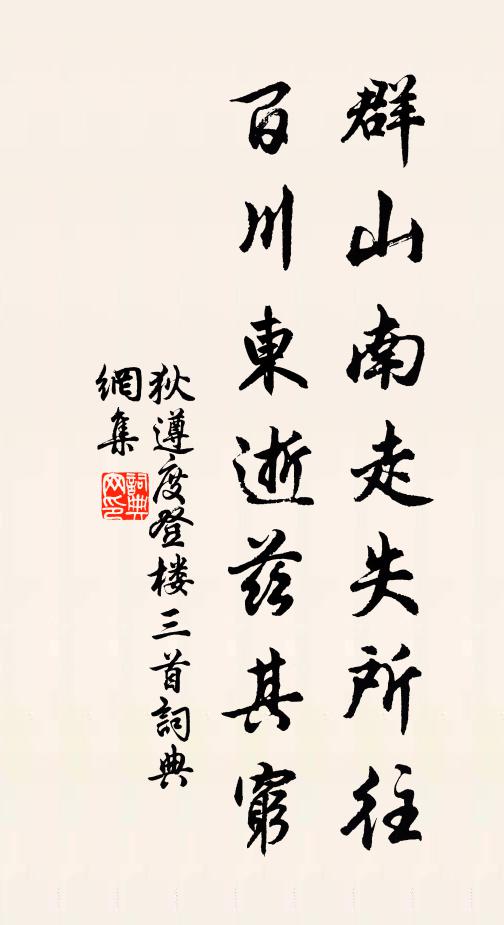 群山南走失所往
百川東逝茲其窮
狄遵度登楼三首詞典
網集
詞典网印